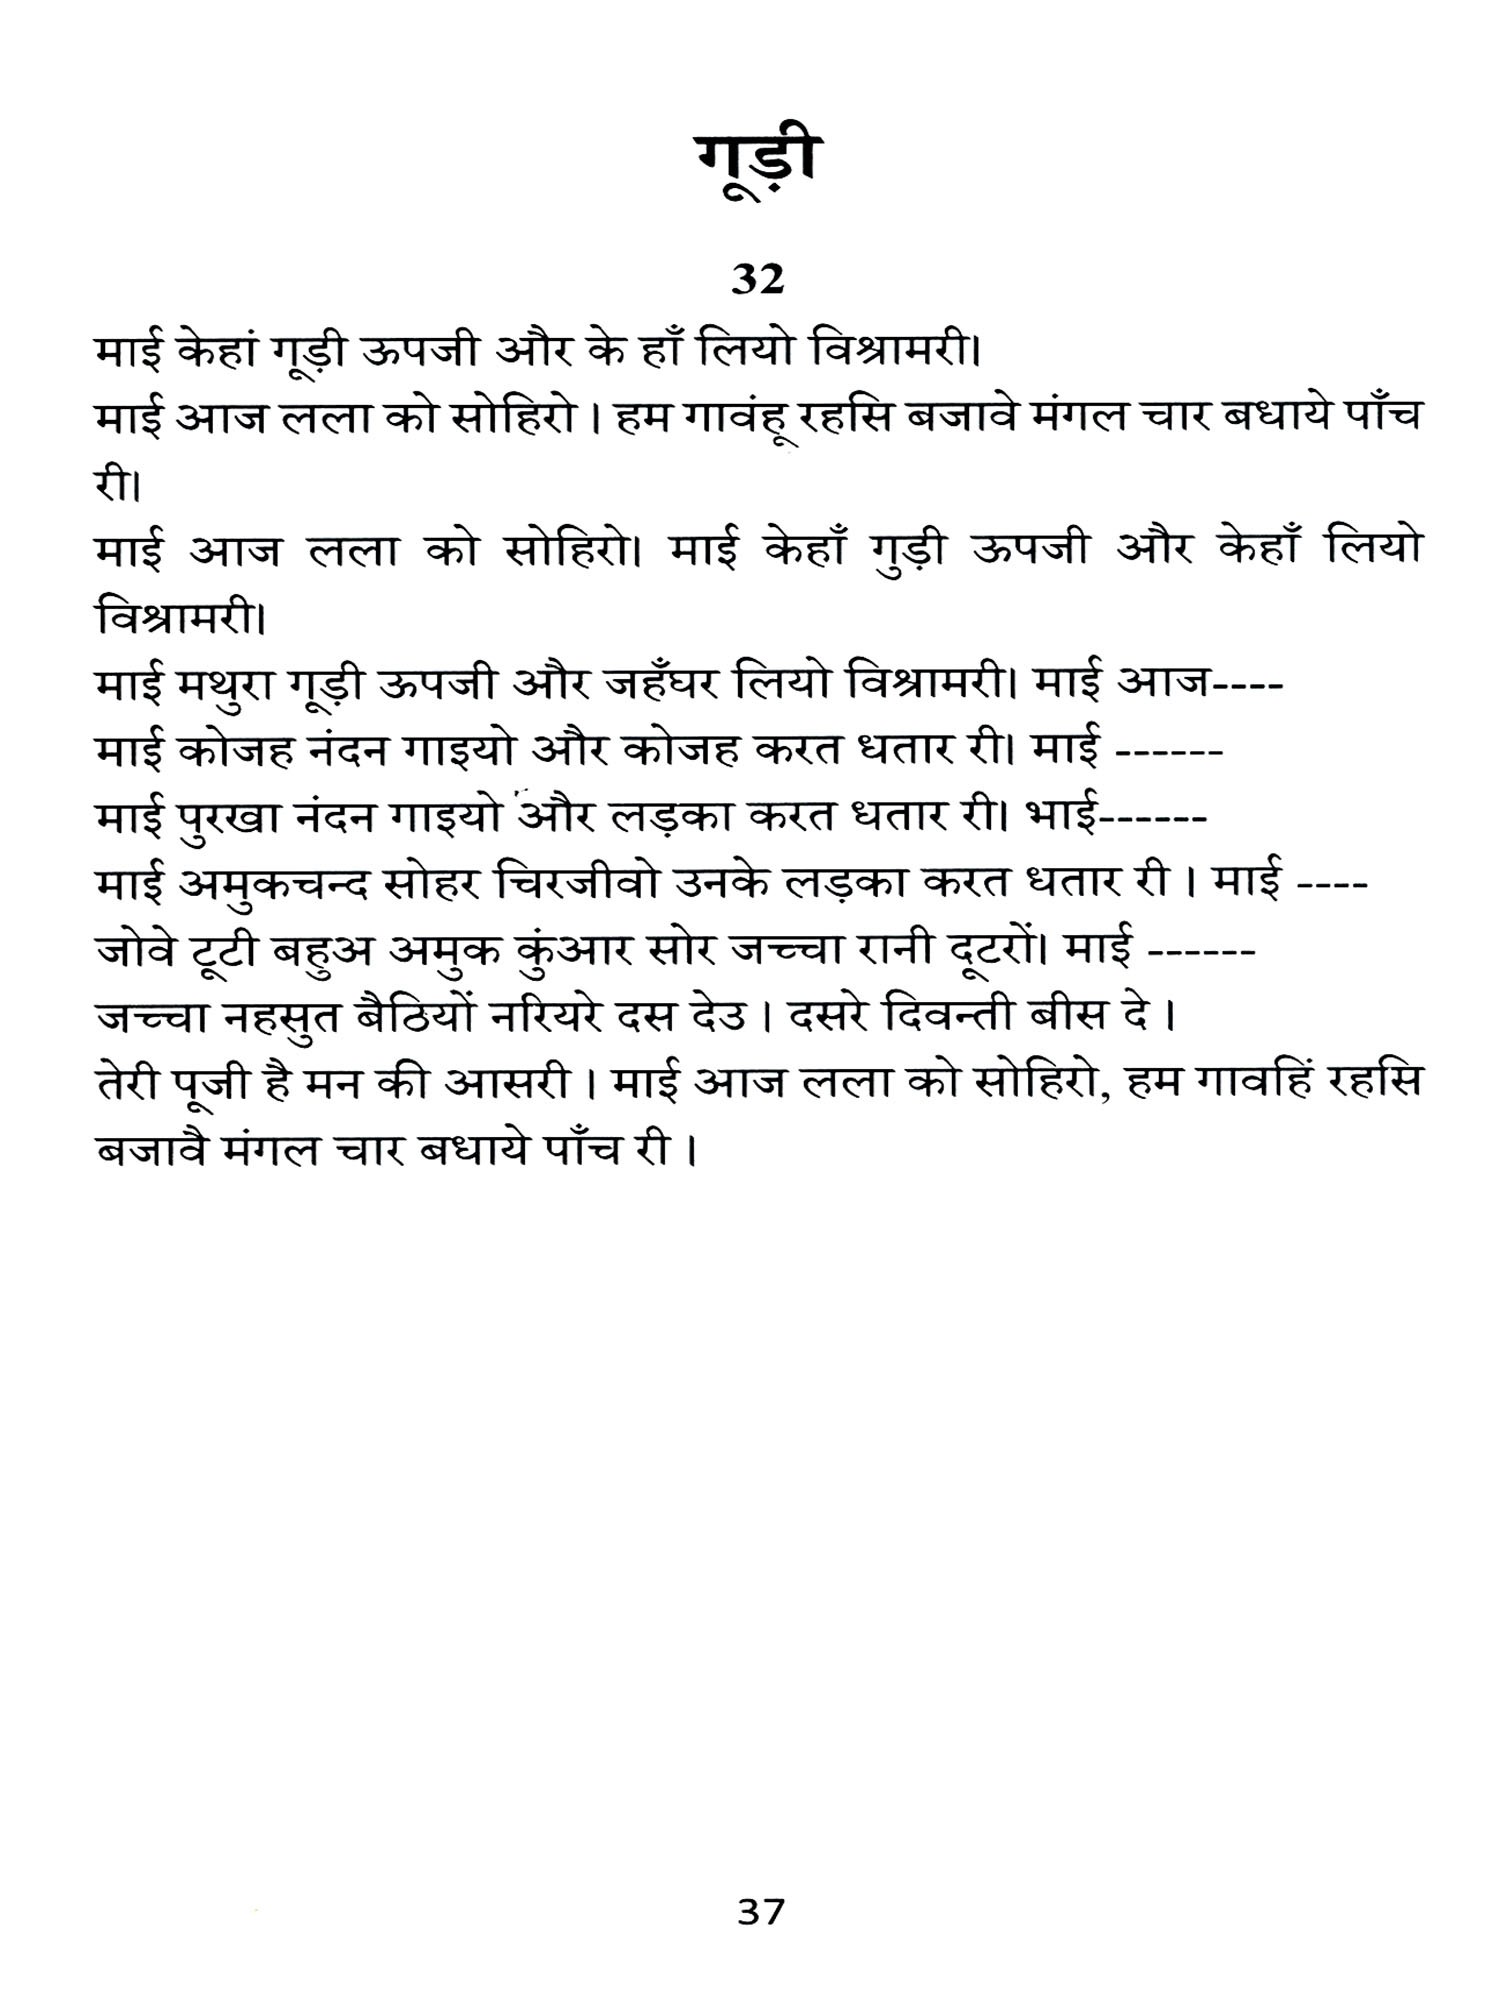 गूड़ी
32
माई केहां गूड़ी ऊपजी और के हाँ लियो विश्रामरी।
माई आज लला को सोहिरो । हम गावंहू रहसि बजावे मंगल चार बधाये पाँच
री।
माई आज लला को सोहिरो। माई केहाँ गुड़ी ऊपजी और केहाँ लियो
विश्रामरी।
माई मथुरा गूड़ी ऊपजी और जहँघर लियो विश्रामरी। माई आज----
माई कोजह नंदन गाइयो और कोजह करत धतार री। माई ------
माई पुरखा नंदन गाइयो और लड़का करत धतार री। भाई------
माई अमुकचन्द सोहर चिरजीवो उनके लड़का करत धतार री । माई ----
जोवे टूटी बहुअ अमुक कुंआर सोर जच्चा रानी दूटरों। माई ------
जच्चा नहसुत बैठियों नरियरे दस देउ । दसरे दिवन्ती बीस दे ।
तेरी पूजी है मन की आसरी । माई आज लला को सोहिरो, हम गावहिं रहसि
बजावै मंगल चार बधाये पाँच री ।
37